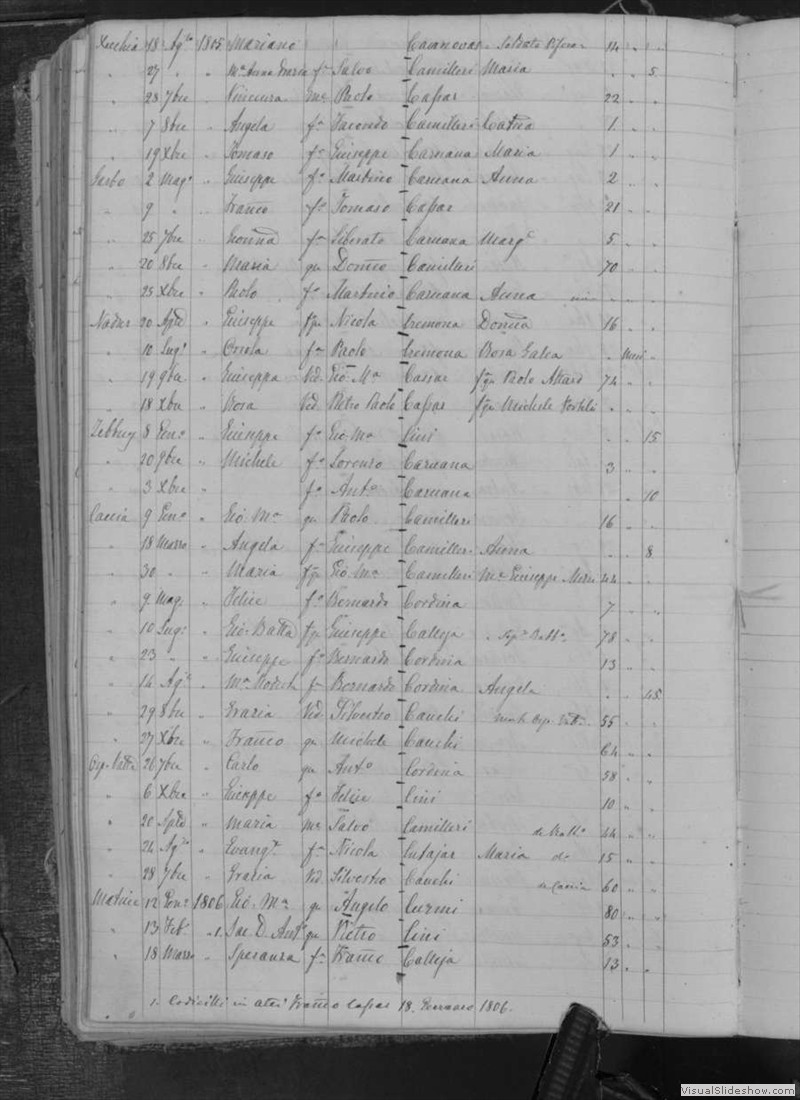 Xechia 18 Ag.to 1805 Mariano Casanovas Soldato 14 " "
" 27 " " M.a Anna Grazia f.a Salvo Camilleri Maria " " 5
" 23 7bre " Vincenza Mc Paolo Caſsar 22 " "
" 7 8bre " Angela f.a Facondo Camilleri Catña 1 " "
" 19 Xbre " Tomaso f.o Giuseppe Caruana Maria 1 " "
Garbo 2 Mag.o " Giuseppe f.o Martino Caruana Anna 2 " "
" 9 " " Franco f.o Tomaso Caſsar 21 " "
" 25 7bre " f.a Liberato Caruana Marg.a 5 " "
" 20 8bre " Maria qu Domco Camilleri 70 " "
" 25 Xbre " Paolo f.o Martinio Caruana Anna " "
Nadur 20 " Giuseppe fqu Nicola Cremona Domca 16 " "
" 10 Lug.o " Orsola f.a Paolo Cremona Rosa Galea " mesi "
" 19 9bre " Giuseppa Ved. Gio. M.a Cassar fqu Paolo Attard 74 " "
" 18 Xbre " Rosa Ved Pietro Paolo Caſsar fqu Michele " " "
Zebbug 8 Gen.o " Giuseppe f.o Gio. M.a Cini " " 15
" 20 9bre " Michele f.o Lorenzo Caruana 3 " "
" 3 Xbre " f.o Ant.o Caruana " " 10
Caccia 9 Gen.o " Gio. M.a qu Paolo Camilleri 16 " "
" 18 Marzo " Angela f.a Giuseppe Camilleri Anna " " 8
" 30 " " Maria fqu Gio. M.a Camilleri Mc Giuseppe 44 " "
" 9 Mag. " Felice f.o Bernardo Cordina 7 " "
" 10 Lug: " Gio. Batta fqu Giuseppe Calleja 78 " "
" 23 " " Giuseppe f.o Bernardo Cordina 13 " "
" 14 Ag.o " M.a f.a Bernardo Cordina Angela " " 45
" 29 8bre " Grazia Ved. Silvestro Cauchi 55 " "
" 27 Xbre " Franco qu Michele Cauchi 64 " "
26 7bre " Carlo qu Ant.o Cordina 58 " "
" 6 Xbre " Giuseppe f.o Felice Cini 10 " "
" 20 " Maria Mc Salvo Camilleri 44 " "
" 24 Ag.to " Evang.ta f.a Nicola Cutajar Maria do 15 " "
" 28 7bre " Grazia Ved. Silvestro Cauchi de Caccia 60 " "
Matrice 12 Gen.o 1806 Gio. M.a qu Angelo Curmi 80 " "
" 13 Feb.o " 1. Sac. D. Ant.o qu Pietro Cini 53 " "
" 18 Marzo " Speranza f.a Franco Calleja 13 " "
1. Codicilli in atti Franco Caſsar 18. Gennaro 1806.
VisualSlideshow.com